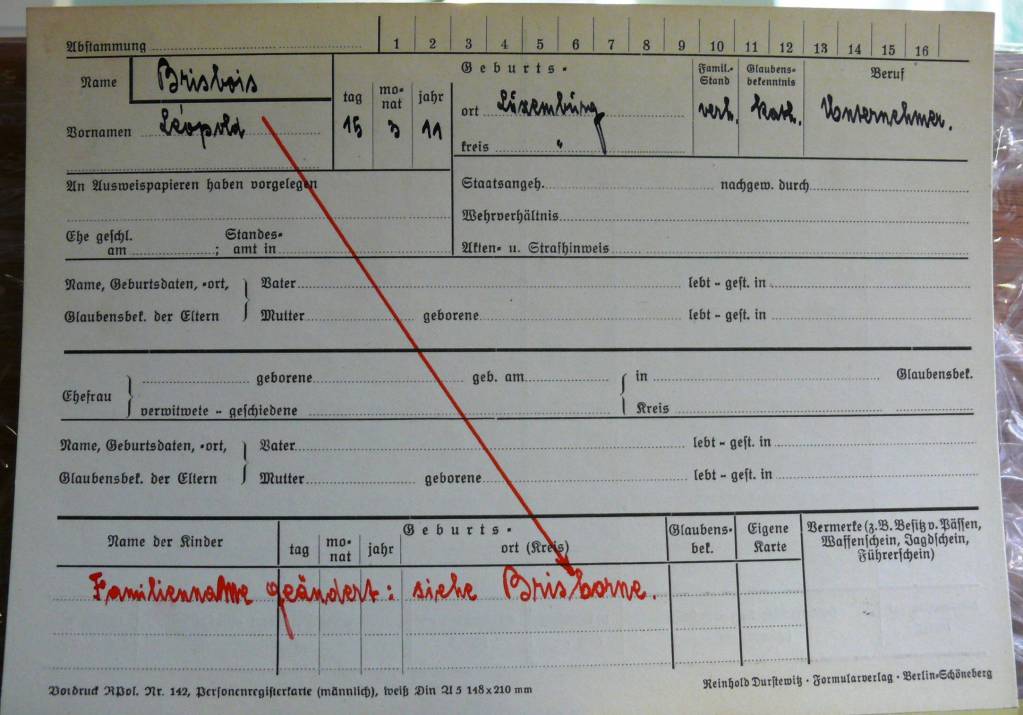 Abstammung 1 2 3 4 5 6 7 8 9 10 11 12 13 14 15 16
Name Brisbois
Vornamen Léopold
tag monat jahr
15 3 11
Geburts-
ort Luxemburg
kreis "
Famil.-Stand
verh.
Glaubens-bekenntnis
kath.
Beruf
Unternehmer.
An Ausweispapieren haben vorgelegen
Staatsangeh. nachgew. durch
Wehrverhältnis
Ehe geschl. Standes-
am ; amt in
Akten- u. Strafhinweis
Name, Geburtsdaten, -ort, Vater lebt - gest. in
Glaubensbek. der Eltern Mutter geborene lebt - gest. in
Ehefrau geborene geb. am in Glaubensbek.
verwitwete - geschiedene Kreis
Name, Geburtsdaten, -ort, Vater lebt - gest. in
Glaubensbek. der Eltern Mutter geborene lebt - gest. in
Name der Kinder
Geburts-
tag monat jahr ort (Kreis)
Glaubens-
bek.
Eigene
Karte
Vermerke (z.B. Besitz v. Pässen,
Waffenschein, Jagdschein,
Führerschein)
Familienname geändert: siehe Brisborne.
Vordruck RPol. Nr. 142, Personenregisterkarte (männlich), weiß Din A 5 148x210 mm
Reinhold Durstewitz · Formularverlag · Berlin-Schöneberg